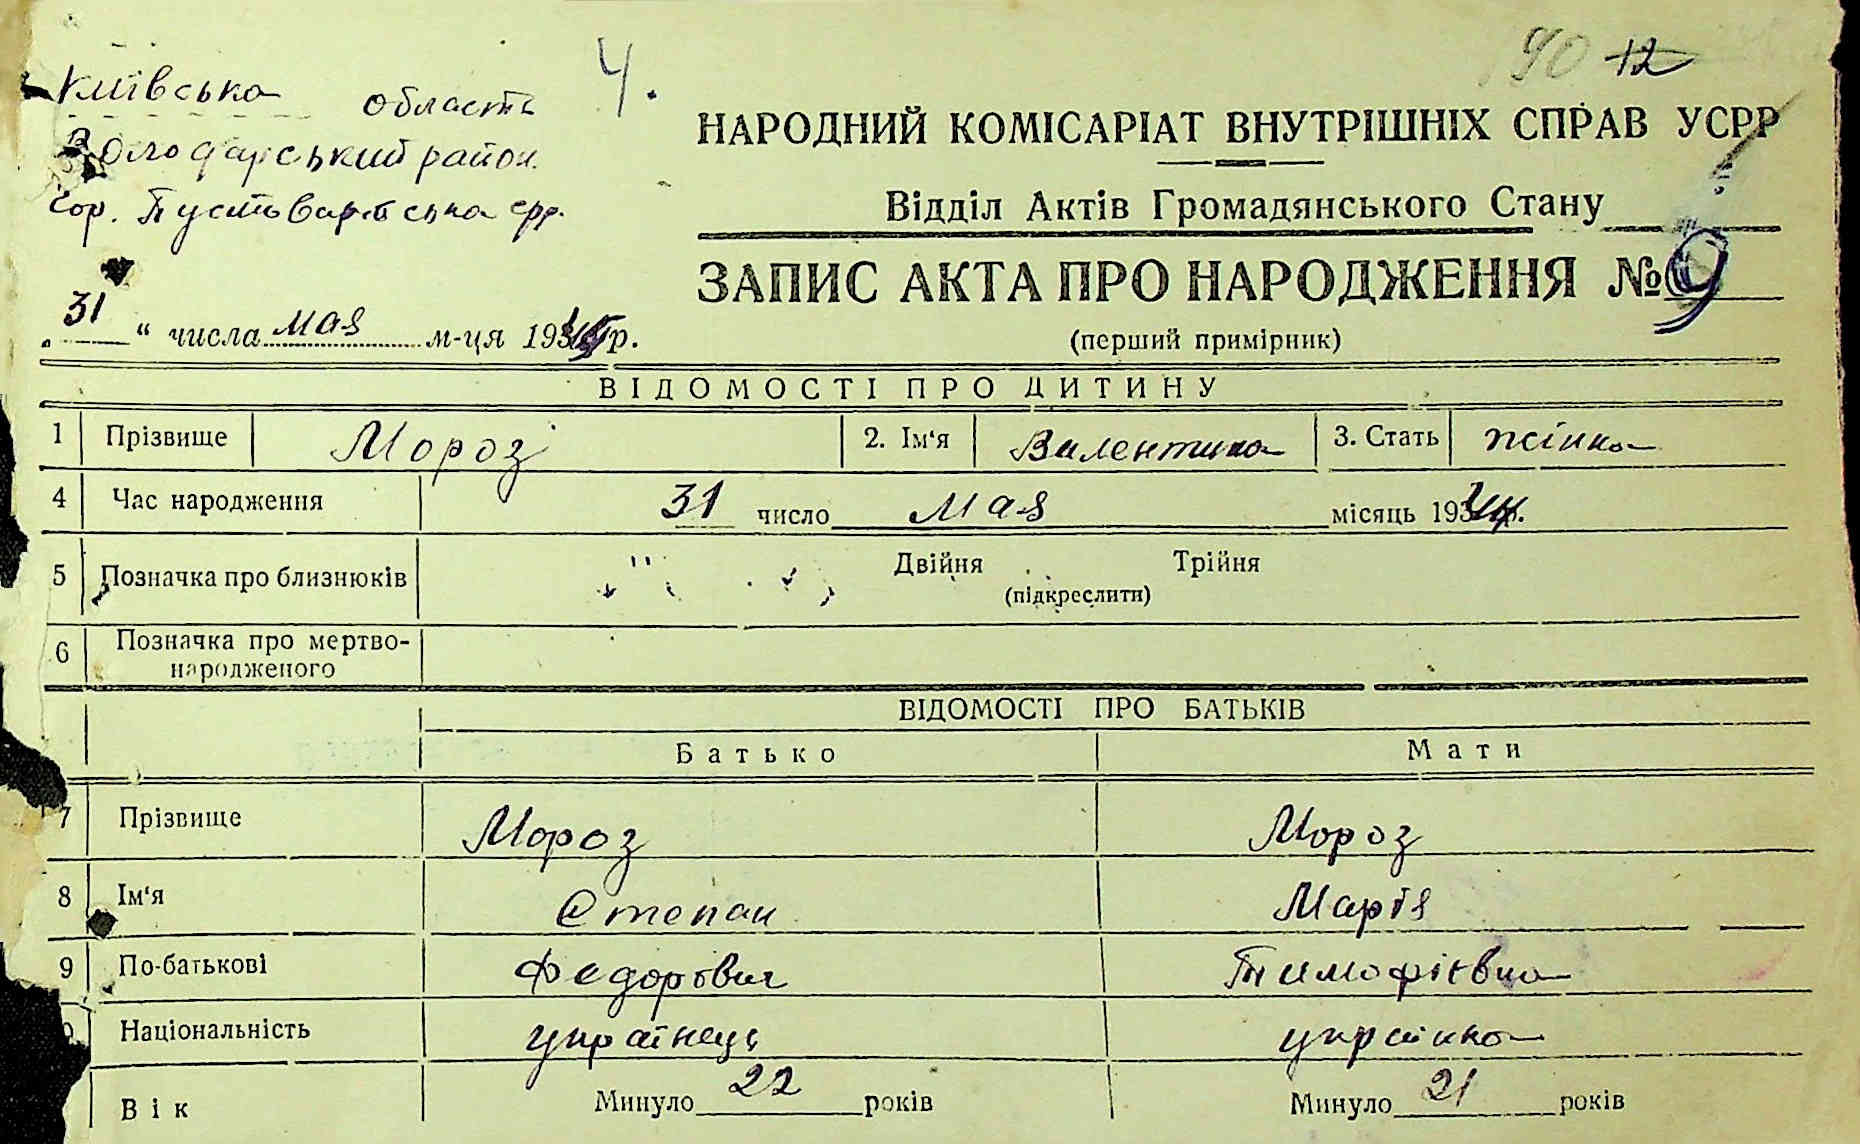 4.
90 12
Київська область
Володарський район
Гор. Пустоварівська срр.
НАРОДНИЙ КОМІСАРІАТ ВНУТРІШНІХ СПРАВ УСРР
Відділ Актів Громадянського Стану
ЗАПИС АКТА ПРО НАРОДЖЕННЯ № 9
(перший примірник)
„ 31 “ числа мая м-ця 193 р.
ВІДОМОСТІ ПРО ДИТИНУ
1 Прізвище Мороз 2. Ім‘я Валентина 3. Стать жінка
4 Час народження 31 число мая місяць 193
5 Позначка про близнюків Двійня Трійня
(підкреслити)
6 Позначка про мертво-
народженого
ВІДОМОСТІ ПРО БАТЬКІВ
Батько Мати
7 Прізвище Мороз Мороз
8 Ім‘я Степан Марія
9 По-батькові Федорович Тимофієвна
Національність українець українка
Вік Минуло 22 років Минуло 21 років